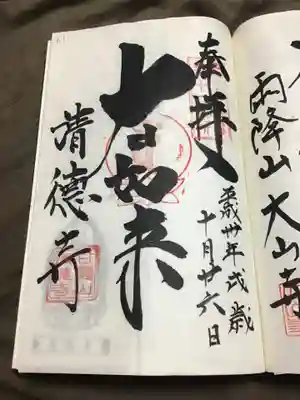 雨降山大山寺
奉拝
平成卅年戌歳
十月廿六日
大日如来
清德寺